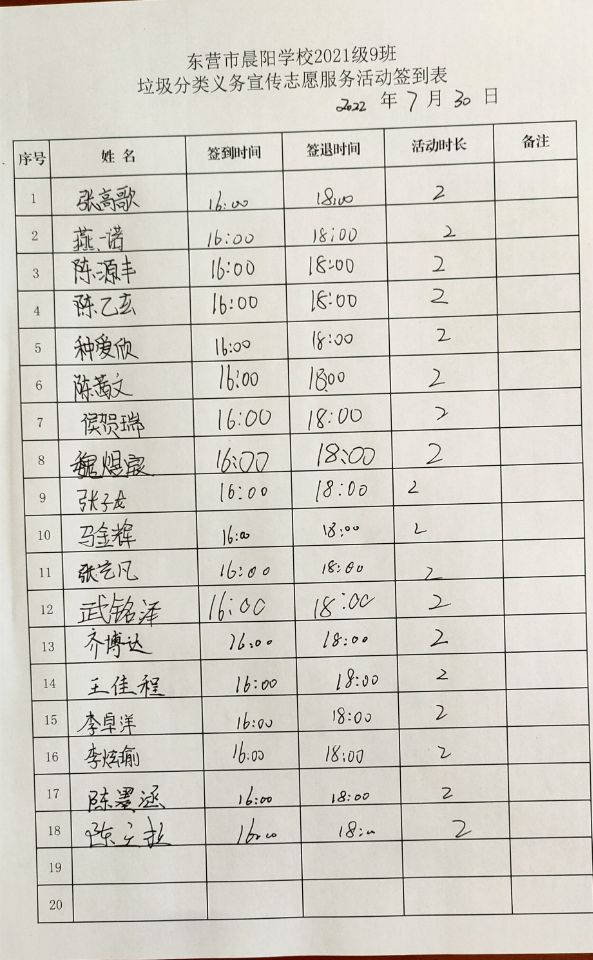 东营市晨阳学校2021级9班
垃圾分类义务宣传志愿服务活动签到表
2022 年 7 月 30 日
序号 姓名 签到时间 签退时间 活动时长 备注
1 张高歌 16:00 18:00 2
2 燕一诺 16:00 18:00 2
3 陈源丰 16:00 18:00 2
4 陈乙玄 16:00 18:00 2
5 种爱欣 16:00 18:00 2
6 陈茜文 16:00 18:00 2
7 侯贺瑞 16:00 18:00 2
8 魏煜宸 16:00 18:00 2
9 张子龙 16:00 18:00 2
10 马金辉 16:00 18:00 2
11 张艺凡 16:00 18:00 2
12 武铭泽 16:00 18:00 2
13 齐博达 16:00 18:00 2
14 王佳程 16:00 18:00 2
15 李卓洋 16:00 18:00 2
16 李炫瑜 16:00 18:00 2
17 陈墨涵 16:00 18:00 2
18 陈 16:00 18:00 2
19
20